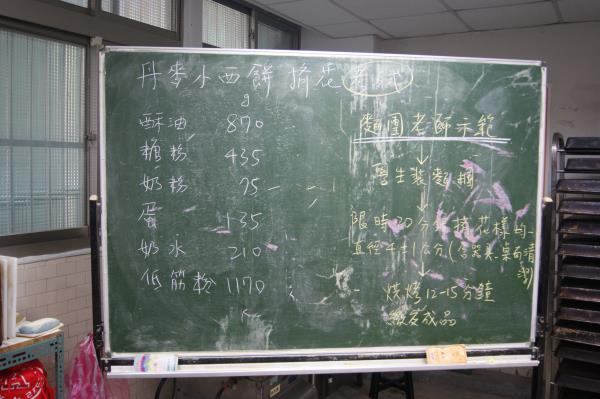 丹麥小西餅 擠花考試
g
酥油 870
糖粉 435
奶粉 75
蛋 135
奶水 210
低筋粉 1170
麵團老師示範
↓
學生裝麵糊
↓
限時20分鐘擠花樣均
直徑4±1公分(含器具、桌面清潔)
↓
烘烤12-15分鐘
繳交成品